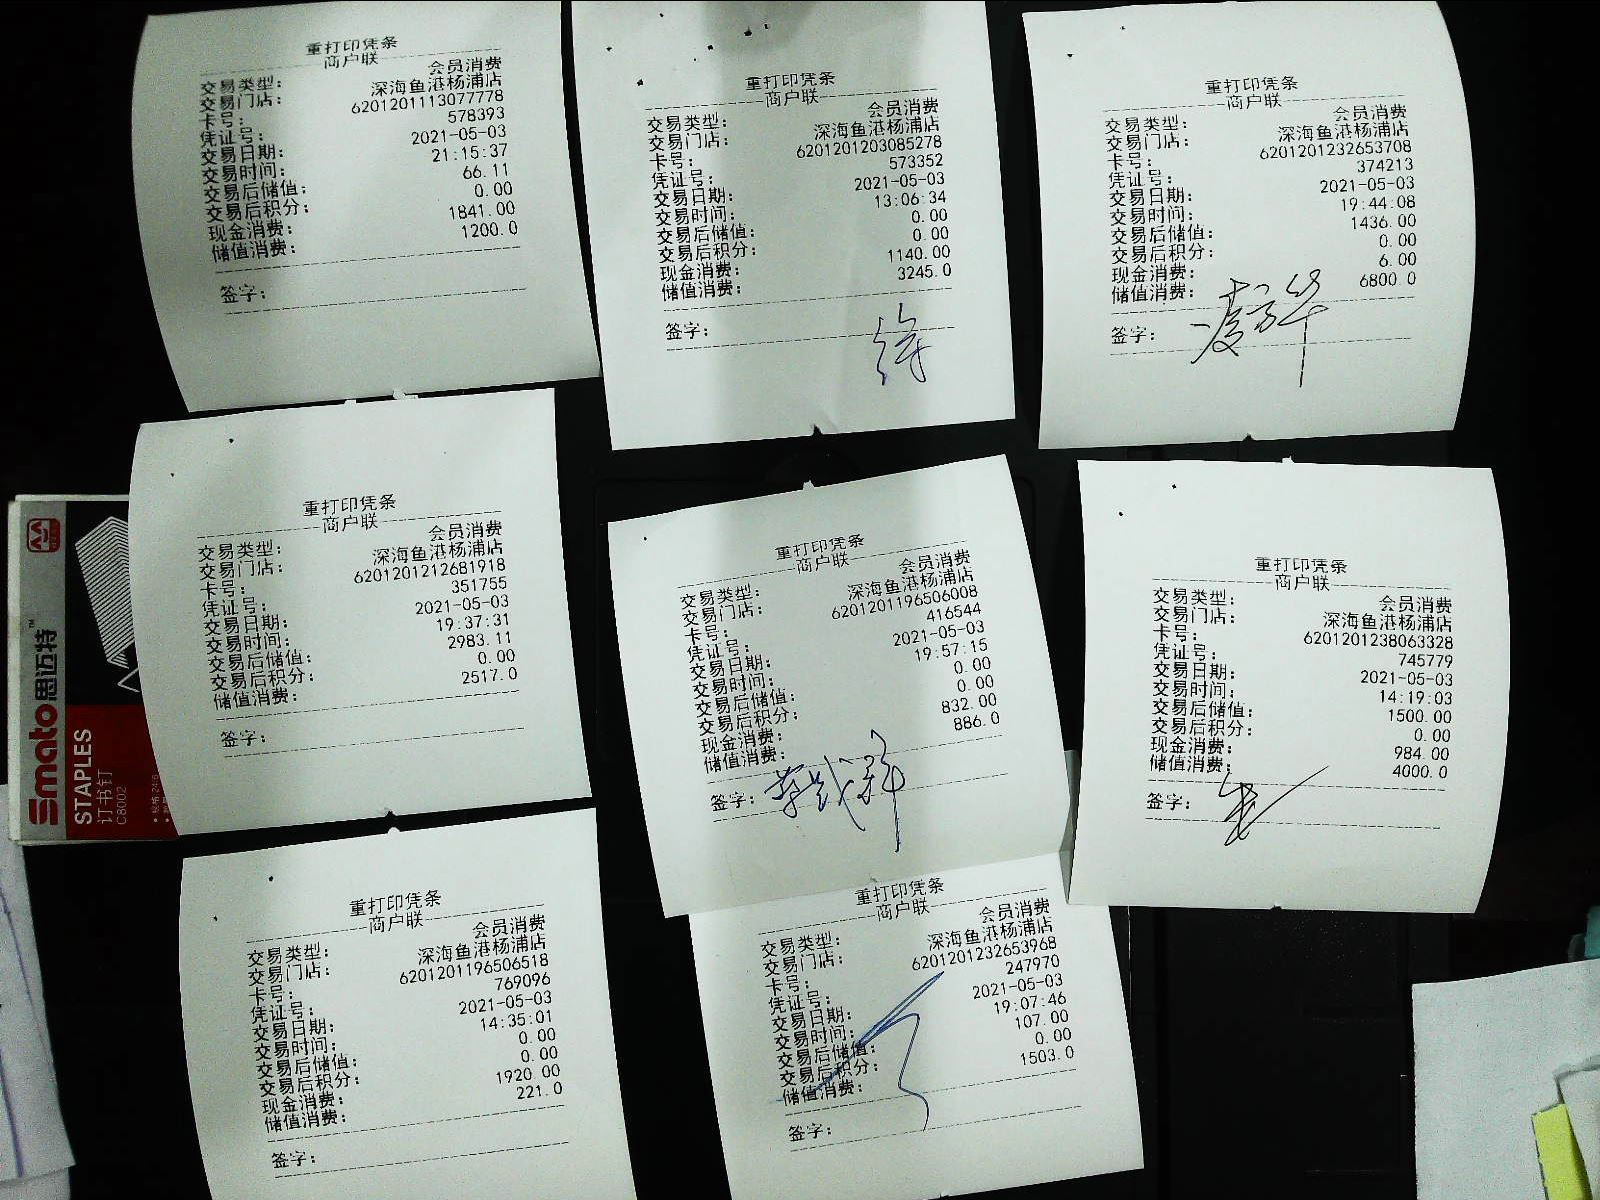 重打印凭条
商户联
交易类型: 会员消费
交易门店: 深海鱼港杨浦店
卡号: 6201201113077778
凭证号: 578393
交易日期: 2021-05-03
交易时间: 21:15:37
交易后储值: 66.11
交易后积分: 0.00
现金消费: 1841.00
储值消费: 1200.0
签字:
重打印凭条
商户联
交易类型: 会员消费
交易门店: 深海鱼港杨浦店
卡号: 6201201203085278
凭证号: 573352
交易日期: 2021-05-03
交易时间: 13:06:34
交易后储值: 0.00
交易后积分: 0.00
现金消费: 1140.00
储值消费: 3245.0
签字:
重打印凭条
商户联
交易类型: 会员消费
交易门店: 深海鱼港杨浦店
卡号: 6201201232653708
凭证号: 374213
交易日期: 2021-05-03
交易时间: 19:44:08
交易后储值: 1436.00
交易后积分: 0.00
现金消费: 6.00
储值消费: 6800.0
签字:
重打印凭条
商户联
交易类型: 会员消费
交易门店: 深海鱼港杨浦店
卡号: 6201201212681918
凭证号: 351755
交易日期: 2021-05-03
交易时间: 19:37:31
交易后储值: 2983.11
交易后积分: 0.00
储值消费: 2517.0
签字:
重打印凭条
商户联
交易类型: 会员消费
交易门店: 深海鱼港杨浦店
卡号: 6201201196506008
凭证号: 416544
交易日期: 2021-05-03
交易时间: 19:57:15
交易后储值: 0.00
交易后积分: 0.00
现金消费: 832.00
储值消费: 886.0
签字:
重打印凭条
商户联
交易类型: 会员消费
交易门店: 深海鱼港杨浦店
卡号: 6201201238063328
凭证号: 745779
交易日期: 2021-05-03
交易时间: 14:19:03
交易后储值: 1500.00
交易后积分: 0.00
现金消费: 984.00
储值消费: 4000.0
签字:
Smato思迈特
STAPLES
订书钉
C8002
重打印凭条
商户联
交易类型: 会员消费
交易门店: 深海鱼港杨浦店
卡号: 6201201196506518
凭证号: 769096
交易日期: 2021-05-03
交易时间: 14:35:01
交易后储值: 0.00
交易后积分: 0.00
现金消费: 1920.00
储值消费: 221.0
签字:
重打印凭条
商户联
交易类型: 会员消费
交易门店: 深海鱼港杨浦店
卡号: 6201201232653968
凭证号: 247970
交易日期: 2021-05-03
交易时间: 19:07:46
交易后储值: 107.00
交易后积分: 0.00
储值消费: 1503.0
签字: